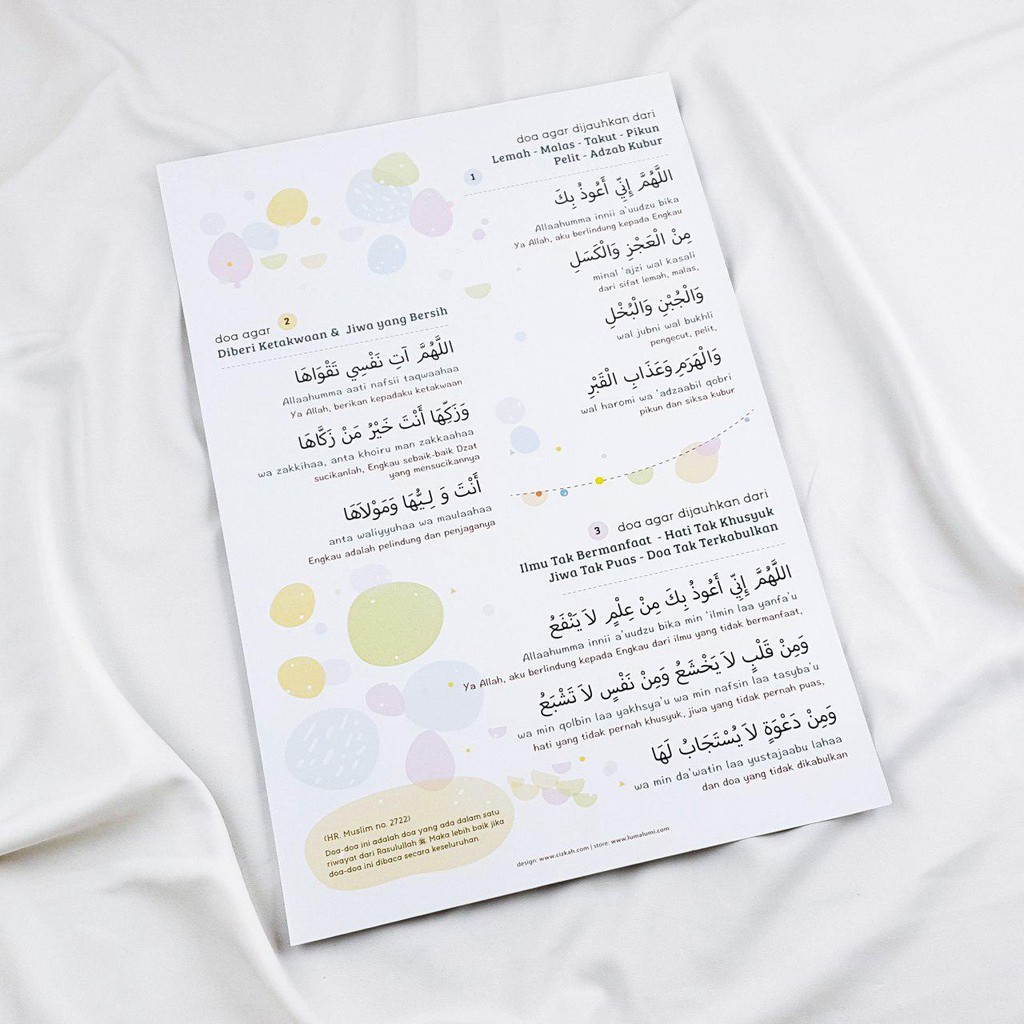 doa agar dijauhkan dari
Lemah - Malas - Takut - Pikun
Pelit - Adzab Kubur
1
اللَّهُمَّ إِنِّي أَعُوذُ بِكَ
Allaahumma innii a'uudzu bika
Ya Allah, aku berlindung kepada Engkau
مِنْ الْعَجْزِ وَالْكَسَلِ
minal 'ajzi wal kasali
dari sifat lemah, malas,
وَالْجُبْنِ وَالْبُخْلِ
wal jubni wal bukhli
pengecut, pelit,
وَالْهَرَمِ وَعَذَابِ الْقَبْرِ
wal haromi wa 'adzaabil qobri
pikun dan siksa kubur
doa agar 2
Diberi Ketakwaan & Jiwa yang Bersih
اللَّهُمَّ آتِ نَفْسِي تَقْوَاهَا
Allaahumma aati nafsii taqwaahaa
Ya Allah, berikan kepadaku ketakwaan
وَزَكِّهَا أَنْتَ خَيْرُ مَنْ زَكَّاهَا
wa zakkihaa, anta khoiru man zakkaahaa
sucikanlah, Engkau sebaik-baik Dzat
yang mensucikannya
أَنْتَ وَ لِيُّهَا وَمَوْلاَهَا
anta waliyyuhaa wa maulaahaa
Engkau adalah pelindung dan penjaganya
3 doa agar dijauhkan dari
Ilmu Tak Bermanfaat - Hati Tak Khusyuk
Jiwa Tak Puas - Doa Tak Terkabulkan
اللَّهُمَّ إِنِّي أَعُوذُ بِكَ مِنْ عِلْمٍ لاَ يَنْفَعُ
Allaahumma innii a'uudzu bika min 'ilmin laa yanfa'u
Ya Allah, aku berlindung kepada Engkau dari ilmu yang tidak bermanfaat,
وَمِنْ قَلْبٍ لاَ يَخْشَعُ وَمِنْ نَفْسٍ لاَ تَشْبَعُ
wa min qolbin laa yakhsya'u wa min nafsin laa tasyba'u
hati yang tidak pernah khusyuk, jiwa yang tidak pernah puas,
وَمِنْ دَعْوَةٍ لاَ يُسْتَجَابُ لَهَا
wa min da'watin laa yustajaabu lahaa
dan doa yang tidak dikabulkan
(HR. Muslim no. 2722)
Doa-doa ini adalah doa yang ada dalam satu
riwayat dari Rasulullah ﷺ Maka lebih baik jika
doa-doa ini dibaca secara keseluruhan
design: www.cizkah.com | store: www.lumalumi.com